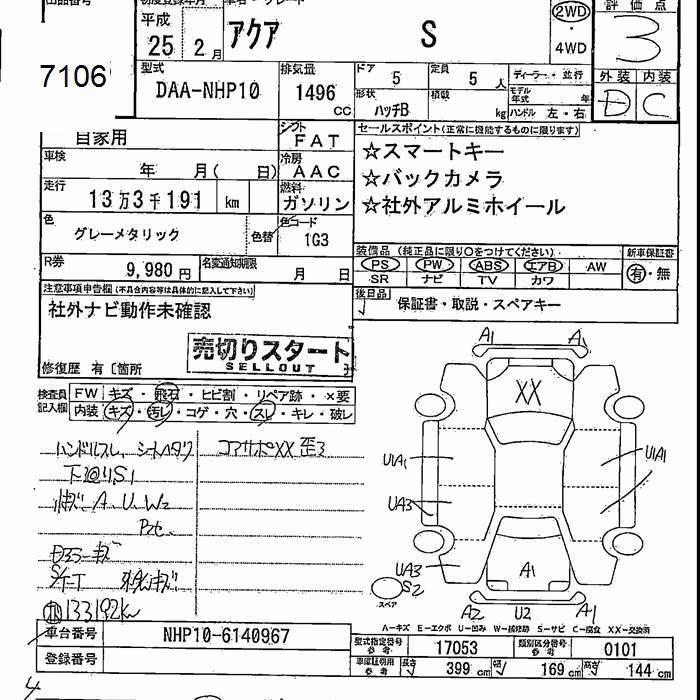 平成
25 2 月
アクア S
2WD
・
4WD
評価点
3
7106
型式
DAA-NHP10
排気量
1496 CC
ドア 5
定員 5 人
ディーラー・並行
形状
ハッチB
積載 kg
モデル年式 年
ハンドル 左・右
外装 内装
D C
自家用
シフト
FAT
車検 年 月( 日)
冷房
AAC
走行
13万3千191 km
燃料
ガソリン
色
グレーメタリック
色替
色コード
1G3
R券
9,980 円
名変通知期限 月 日
セールスポイント(正常に機能するものに限ります)
☆スマートキー
☆バックカメラ
☆社外アルミホイール
装備品(純正品に限り○をつけてください)
新車保証書
PS PW ABS エアB AW
SR ナビ TV カワ
有・無
後日品
保証書・取説・スペアキー
注意事項申告欄(不具合内容等は具体的に記入して下さい)
社外ナビ動作未確認
売切りスタート
SELLOUT
修復歴 有〔箇所
検査員
記入欄
FW キズ・飛石・ヒビ割・リペア跡・×要
内装 キズ・汚レ・コゲ・穴・スレ・キレ・破レ
ハンドルスレ シートヘタリ
下廻りS1
コアサポXX 歪3
A、U、W2
133192km
A1 A1
XX
U1A1 U1A1
UA3
UA3
A1
S2
スペア
A2 U2 A1
A-キズ E-エクボ U-凹み W-補修跡 S-サビ C-腐食 XX-交換済
車台番号 NHP10-6140967
登録番号
型式指定番号
参考
17053
類別区分番号
参考
0101
車庫証明用
参考
長さ 399 cm
幅 169 cm
高さ 144 cm
4